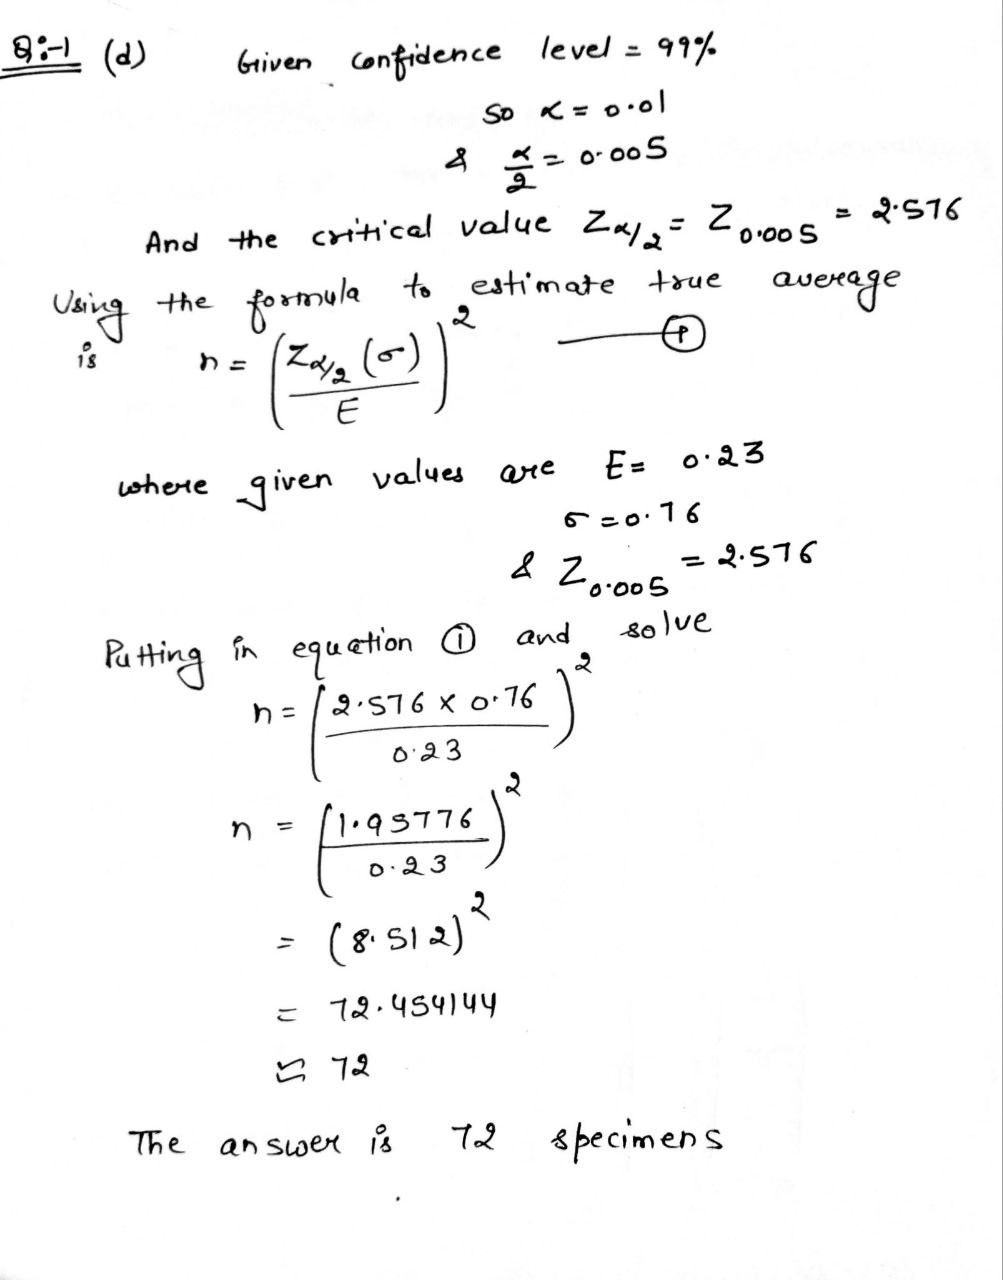 Q:-1 (d) Given confidence level = 99%
so α = 0.01
& α/2 = 0.005
And the critical value Zα/2 = Z0.005 = 2.576
Using the formula to estimate true average
is n = (Zα/2 (σ) / E)² —— ①
where given values are E = 0.23
σ = 0.76
& Z0.005 = 2.576
Putting in equation ① and solve
n = (2.576 × 0.76 / 0.23)²
n = (1.95776 / 0.23)²
= (8.512)²
= 72.454144
≈ 72
The answer is 72 specimens